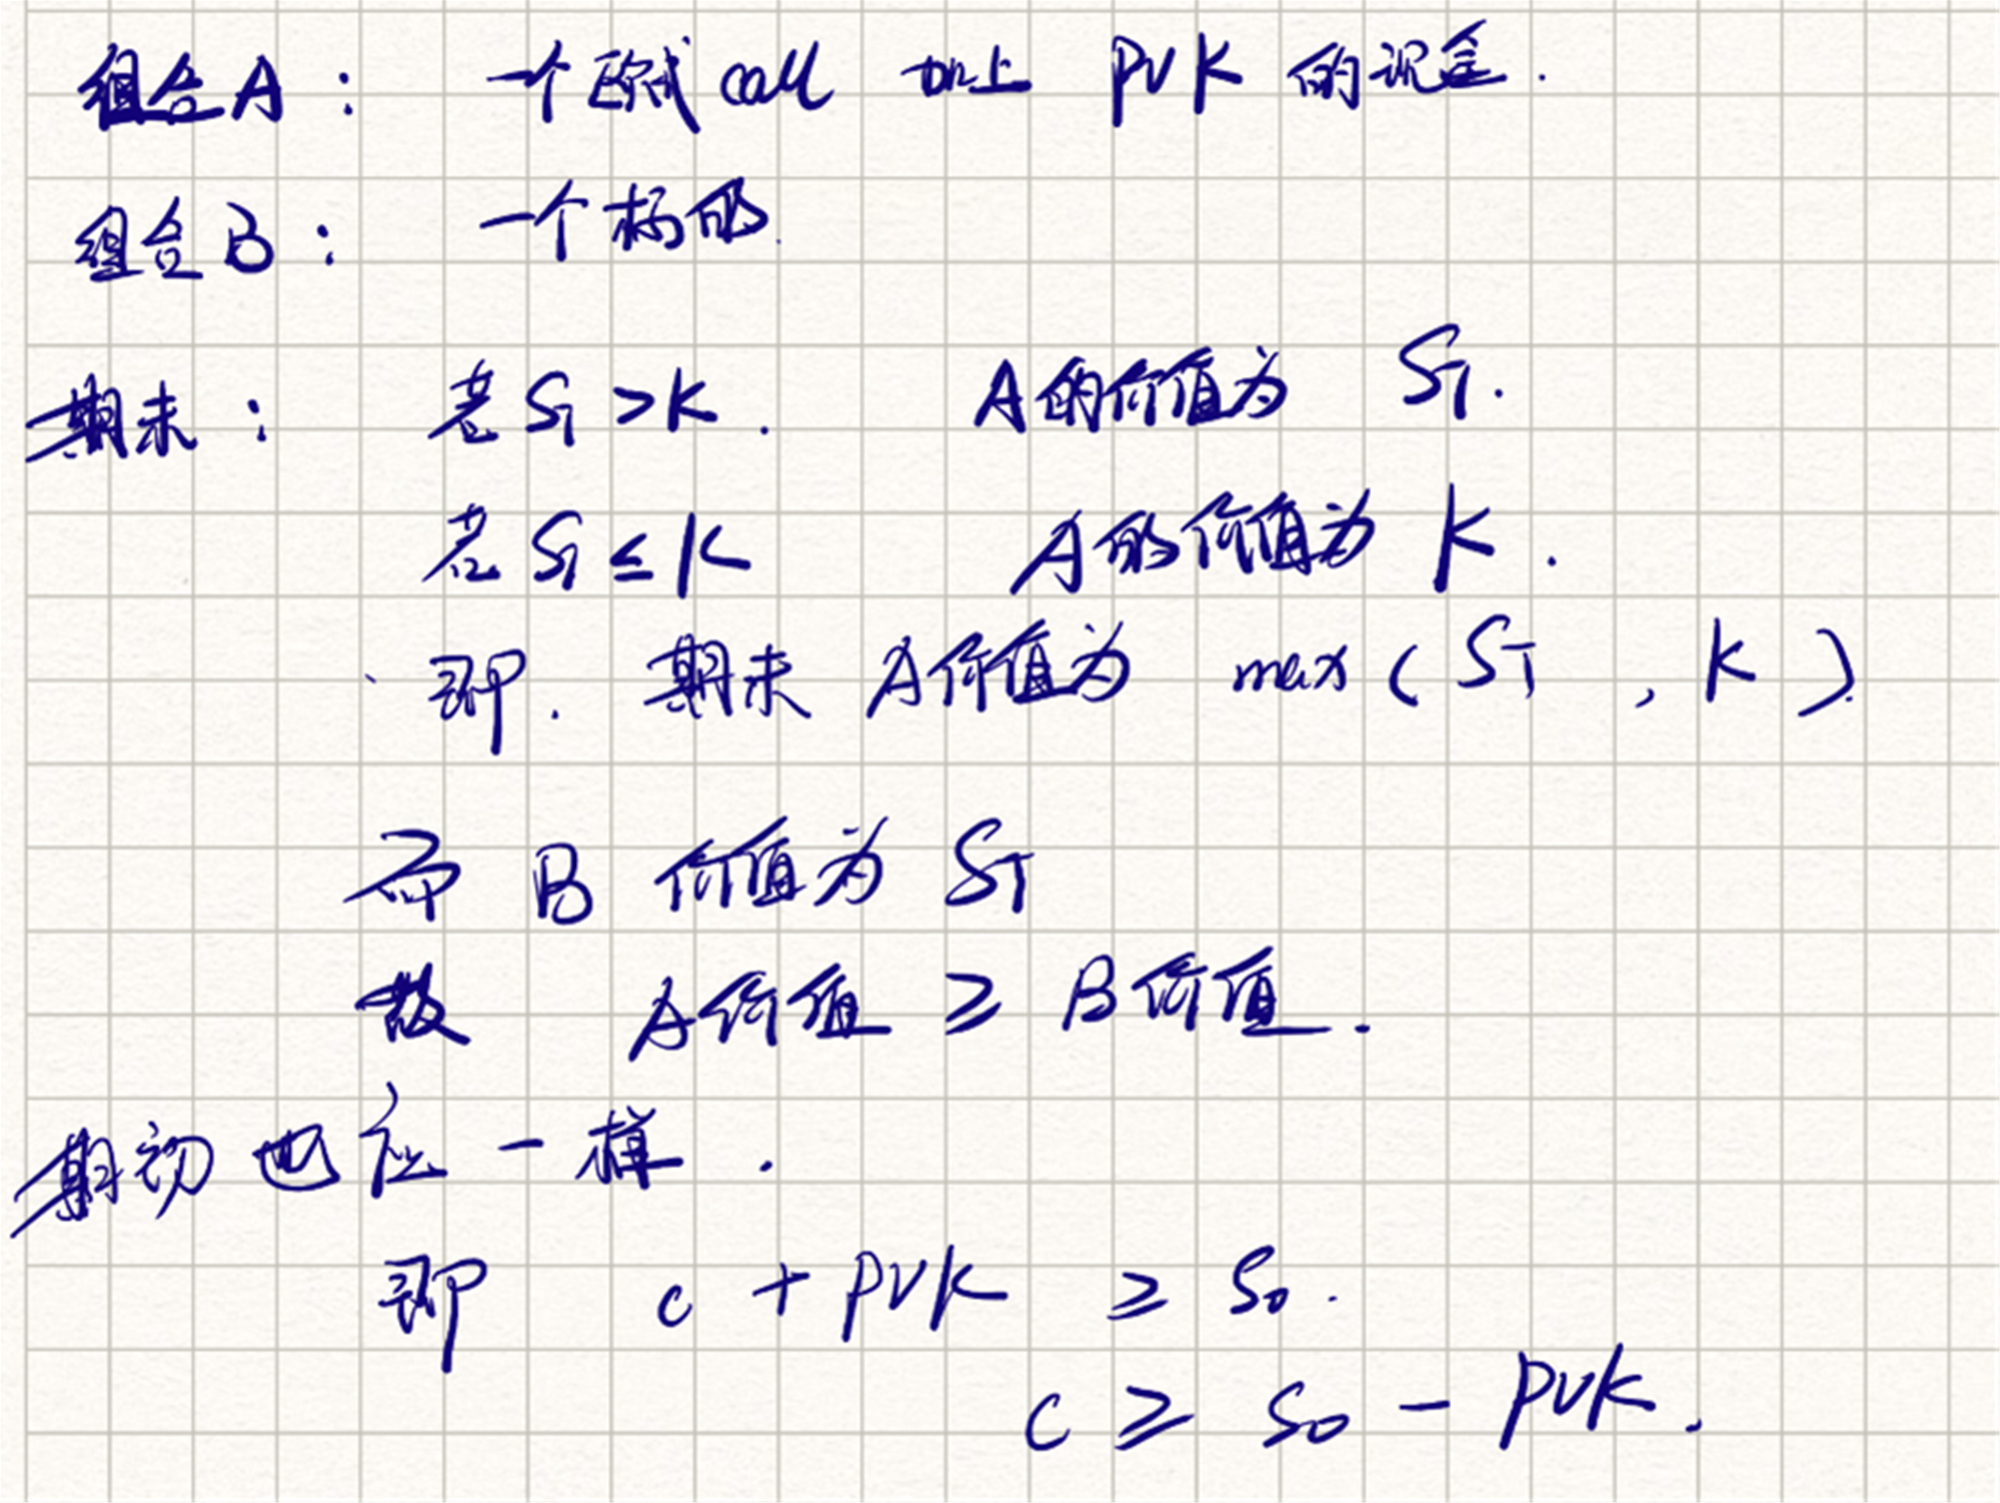 组合A： 一个欧式call 加上 PVK 的现金.
组合B： 一个标的.
期末： 若 S_T > K. A的价值为 S_T.
若 S_T ≤ K A的价值为 K.
即. 期末 A价值为 max ( S_T , K ).
而 B 价值为 S_T
故 A价值 ≥ B价值.
期初也应一样.
即 c + PVK ≥ S_0.
c ≥ S_0 - PVK.